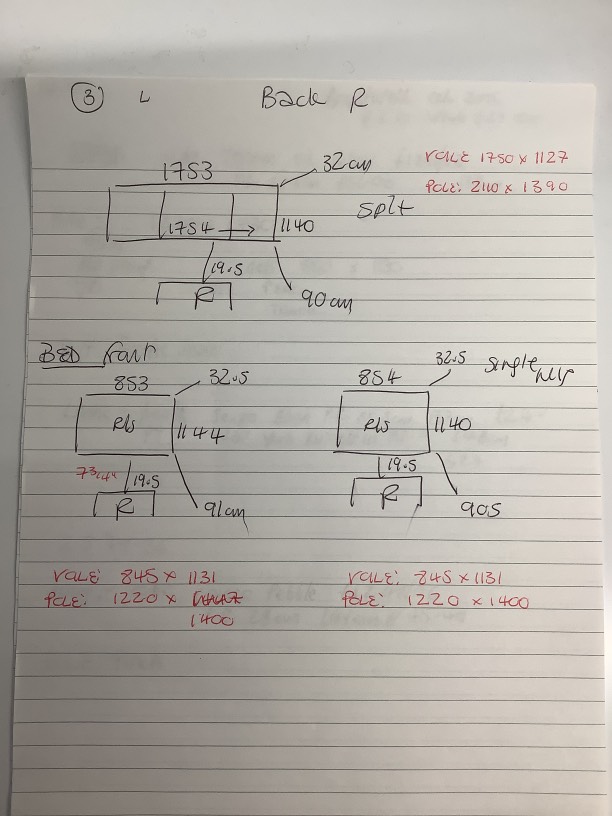 3 L Back R
1753 32cm
1754 → 1140
Split
19.5
R 90cm
VALE 1750 x 1127
POLE: 2110 x 1390
BED front
853 32.5
R/s 1144
19.5
R 91cm
854 32.5
single
R/s 1140
19.5
R 90.5
VALE: 845 x 1131
POLE: 1220 x
1400
VALE: 845 x 1131
POLE: 1220 x 1400